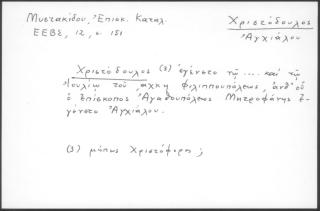 Μυστακίδου, Ἐπισκ. Καταλ.
ΕΕΒΣ, 12, σ. 151
Χριστόδουλος
Ἀγχιάλου
Χριστόδουλος (3) ἐγένετο τῷ .... καὶ τῷ
Ἰουλίῳ τοῦ Φιλιππουπόλεως, ἀνθ' οὗ
ὁ ἐπίσκοπος Ἀγαθουπόλεως Μητροφάνης ἐ-
γένετο Ἀγχιάλου.
(3) μήπως Χριστόφορη ;